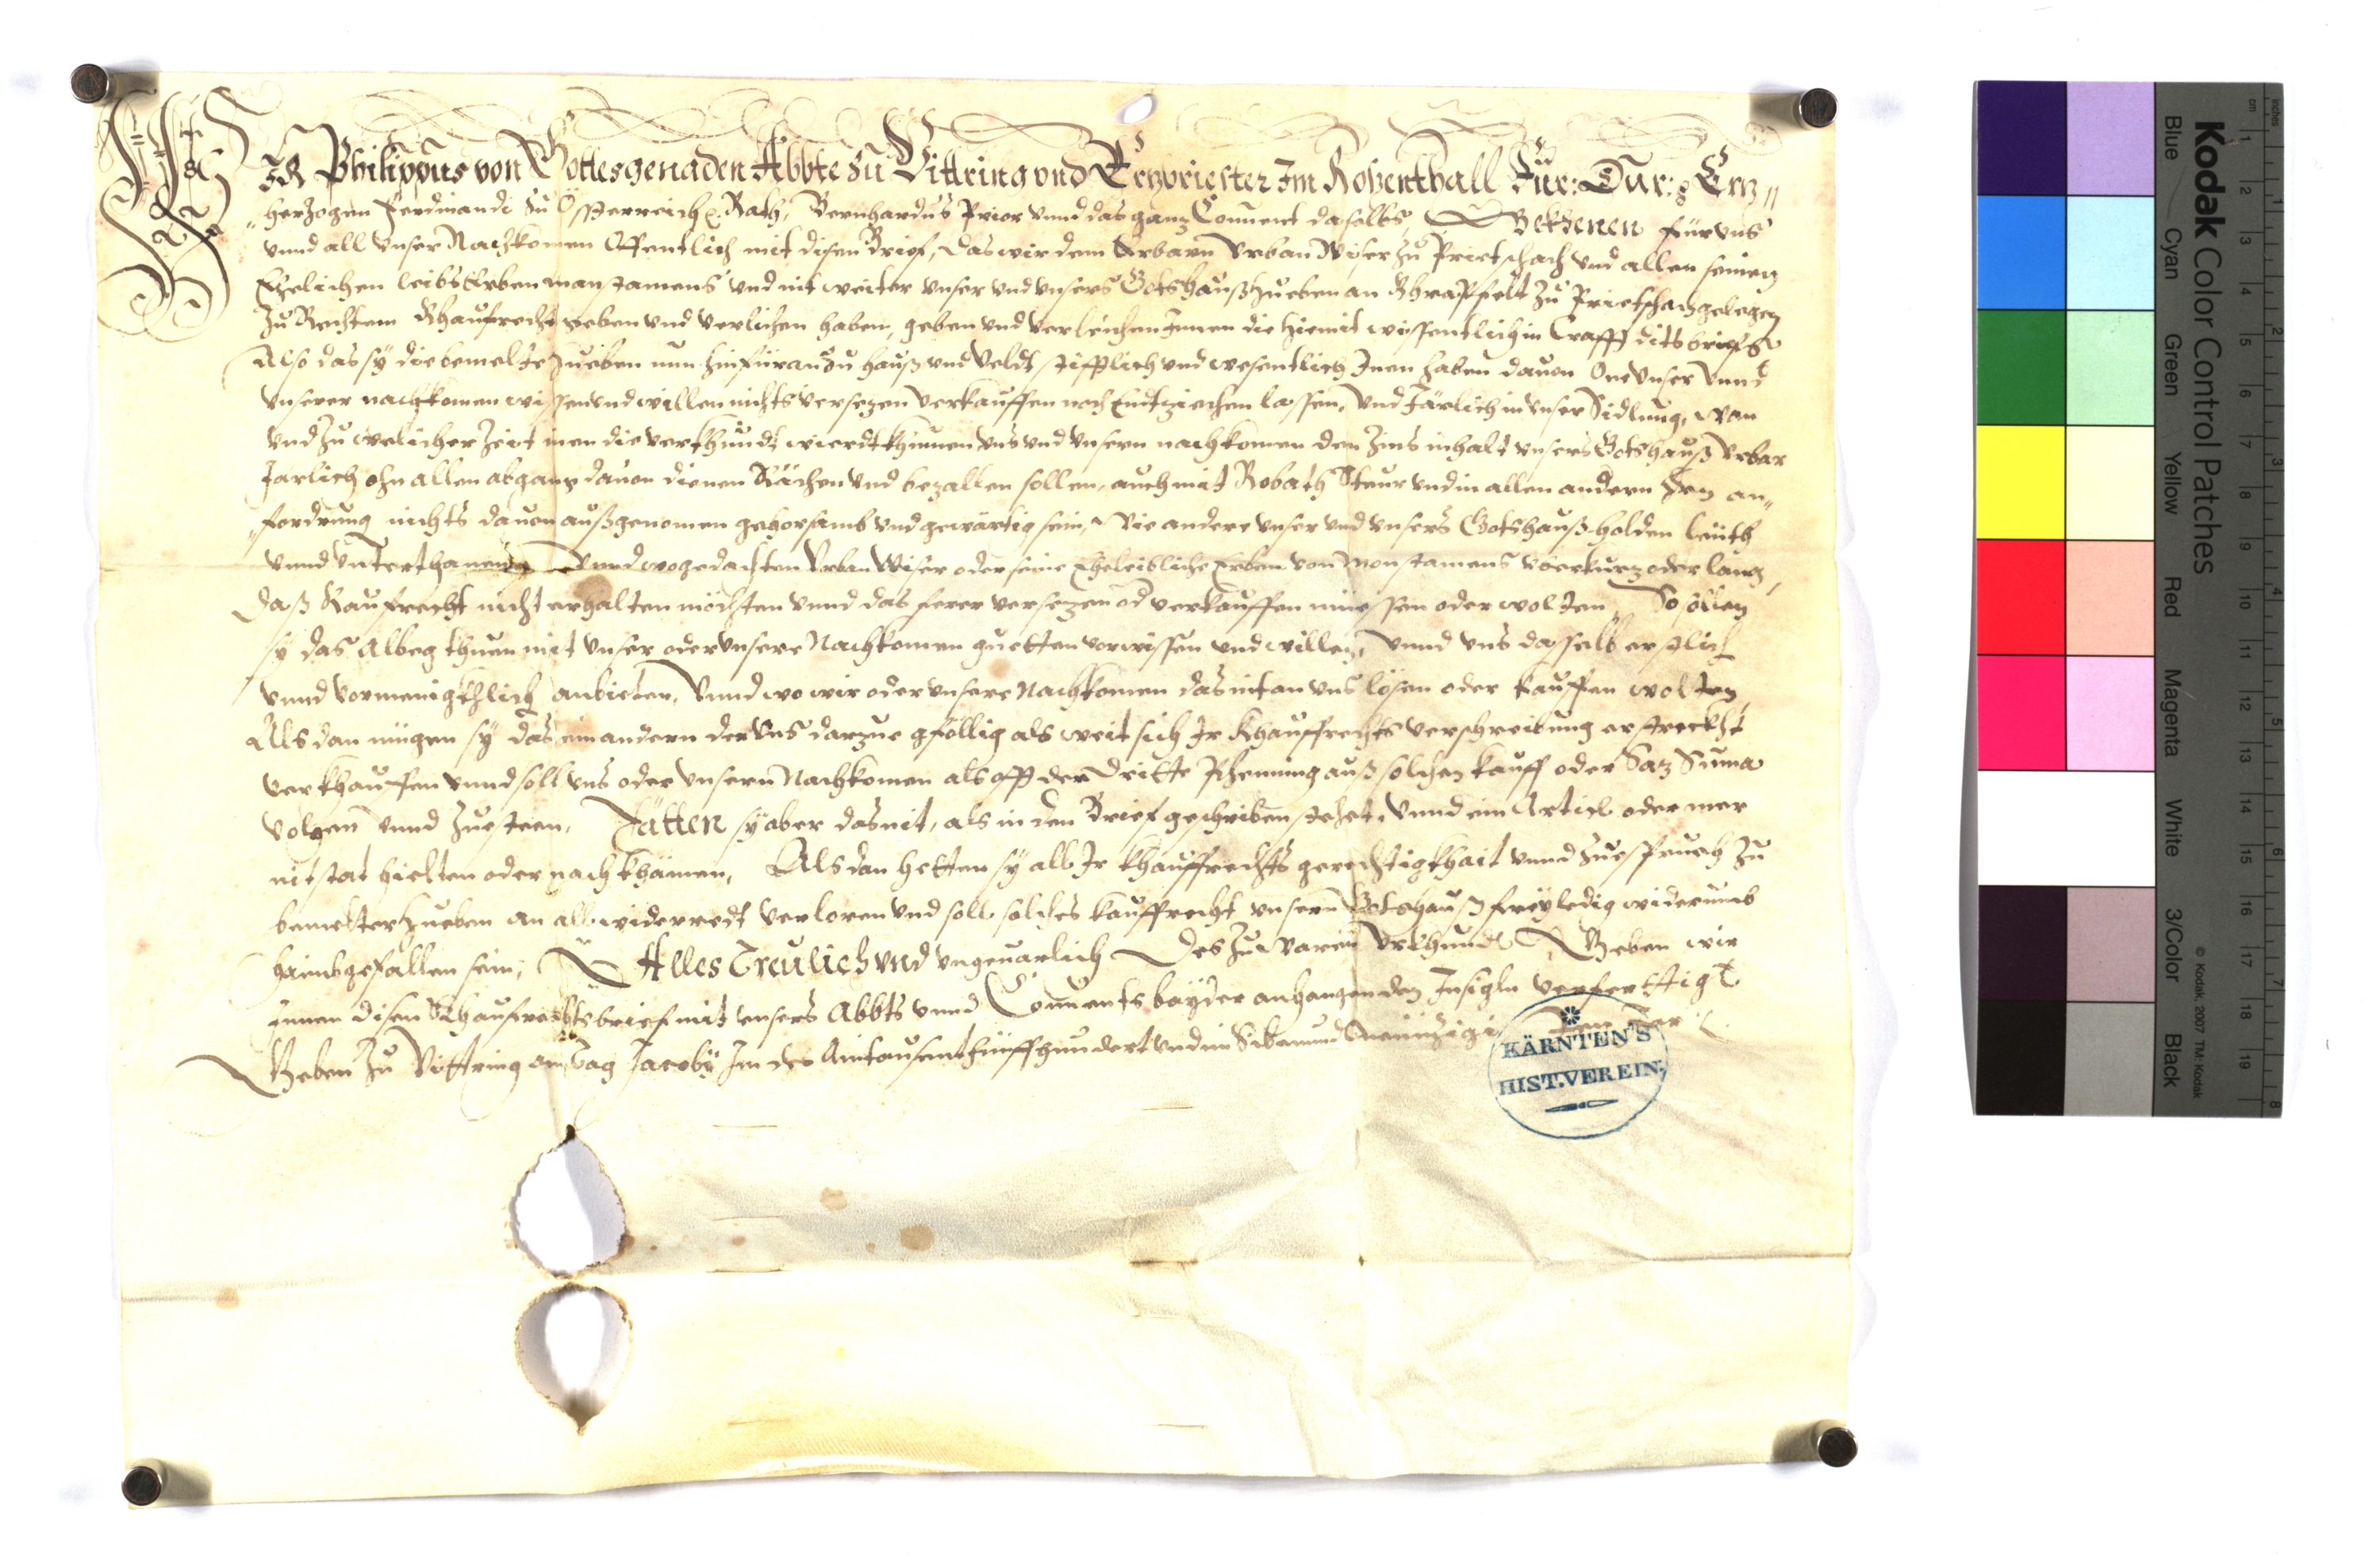 Wir Philippus von Gottes genaden Abbte zu Vittring vnd Erzpriester Im Rosenthall Für: Dur: Erz„
„herzogen Ferdinandi zu Össterreich Rath, Bernhardus Prior vnnd das ganz Conuent daselbs, Bekhenen für vns
vnnd all vnser Nachkomen Offentlich mit disen Brief, das wir dem Erbarn Vrban Wiser zu Prietschach vnd allen seinen
Ehelichen leibs Erben manstamens vnd nit weiter vnser vnd vnsers Gotshauß Hueben an Khrapffelt zu Prietschach gelegen
zu Rechtem Khaufrecht geben vnd verlichen haben, geben vnd verleichen Innen die hiemit wissentlich in Crafft dits briefs
Also das sÿ die bemelte Hueben nun hinfüran zu hauß vnd veldt stifftlich vnd wesentlich Innen haben dauon One vnser vnnd
vnserer nachkomen wissen vnd willen nichts versezen verkauffen noch Entziechen lassen, vnd Järlich in vnser Stidlung, wan
vnd zu welicher zeit inen die verkhundt wierdt khumen vns vnd vnsern nachkomen den Zins inhalt vnsers Gotshauß Vrbar
Jarlich ohn allen abgang dauon dienen Raichen vnd bezallen sollen, auch mit Robath Steur vnd in allen andern an„
„fordrung nichts dauon außgenomen gehorsamb vnd gewärtig sein, Wie andere vnser vnd vnsers Gotshauß holden leuth
vnnd vnterthanen, Vnnd wo gedachten Vrban Wiser oder seine Eheleibliche Erben von Monstamens vber kurz oder lang,
Daß Kaufrecht nicht erhalten möchten vnnd das ferer versezen od verkauffen müessen oder wolten, So sollen
sÿ das Albeg thuen mit vnser oder vnsere Nachkomen guetten vorwissen vnd willen, Vnnd vns dasselb erstlich
vnnd vormenigkhlich anbieten, Vnnd wo wir oder vnsere Nachkomen das nit an vns lösen oder kauffen wolten,
Als dan mügen sÿ das ein andern der vns darzue gföllig als weit sich Ir Khauffrechts verschreibung erstreckht
verkhauffen vnnd soll vns oder vnsern Nachkomen als offt der Dritte Phenning auß solchen kauff oder Saz Suma
volgen vnnd zuesteen, Tätten sÿ aber das nit, als in den Brief geschriben stehet, Vnnd ein Articl oder mer
nit stat hielten oder nach khämen, Als dan hetten sÿ all Ir khauffrechts gerechtigkhait vnnd zuespruch zu
bemelter Hueben an all widerredt verloren vnd soll solches kauffrecht vnsern Gotshauß freÿ ledig widerumb
haimbgefallen sein, Alles Treulich vnd vngeuarlich Des zu waren Vrkhundt Geben wir
innen disen Khaufrechtsbrief mit vnsers Abbts vnnd Conuents bayder anhangenden Insigln verferttigt
Geben zu Vittring an Tag Jacobÿ Im des Aintausent fünffhundert vnd im Siben vnd Neünzigi Jar
KÄRNTEN'S
HIST. VEREIN
Kodak Color Control Patches
Blue Cyan Green Yellow Red Magenta White 3/Color Black
© Kodak, 2007 TM: Kodak
cm 1 2 3 4 5 6 7 8 9 10 11 12 13 14 15 16 17 18 19
inches 1 2 3 4 5 6 7 8